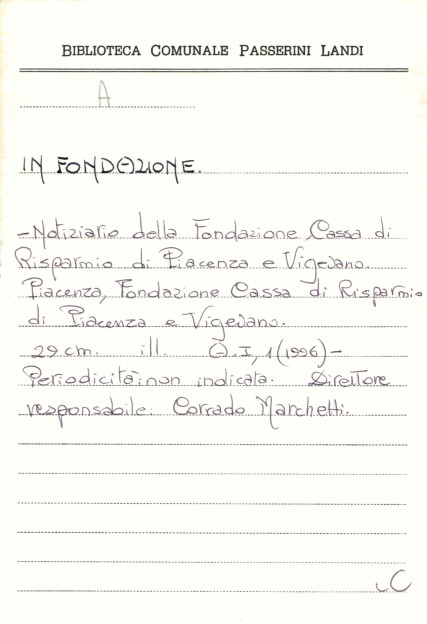 BIBLIOTECA COMUNALE PASSERINI LANDI
A
IN FONDAZIONE.
- Notiziario della Fondazione Cassa di
Risparmio di Piacenza e Vigevano.
Piacenza, Fondazione Cassa di Risparmio
di Piacenza e Vigevano.
29 cm. ill. A. I, 1 (1996) -
Periodicità: non indicata. Direttore
responsabile: Corrado Marchetti.